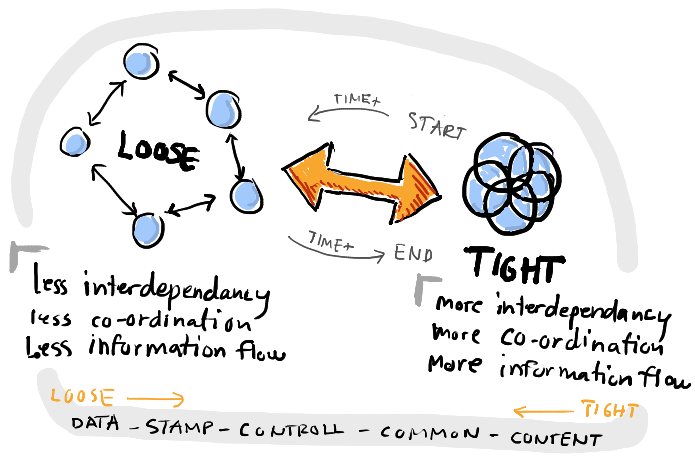 TIME+
START
LOOSE
TIME+
END
TIGHT
less interdependancy
less co-ordination
Less information flow
more interdependancy
more co-ordination
more information flow
LOOSE
TIGHT
DATA - STAMP - CONTROLL - COMMON - CONTENT